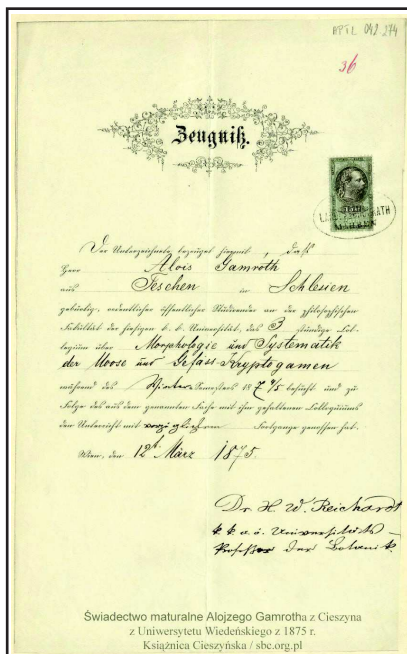 BPTL 042 274
36
Zeugniß.
Der Unterzeichnete bezeuget hiermit, daß
Herr Alois Gamroth
aus Teschen in Schlesien
gebürtig, ordentlicher öffentlicher Studirender an der philosophischen
Fakultät der hiesigen k. k. Universität, das 3 stündige Col-
legium über Morphologie und Systematik
der Moose und Gefäss-Kryptogamen
während des Winter-Semesters 187 4/5 besucht und zu
Folge des aus dem genannten Fache mit ihm gehaltenen Colloquiums
den Unterricht mit vorzüglichem Fortgange genossen hat.
Wien, den 12t März 1875.
Dr. H. W. Reichardt
k. k. a. ö. Universitäts-
Professor der Botanik.
Świadectwo maturalne Alojzego Gamrotha z Cieszyna
z Uniwersytetu Wiedeńskiego z 1875 r.
Książnica Cieszyńska / sbc.org.pl